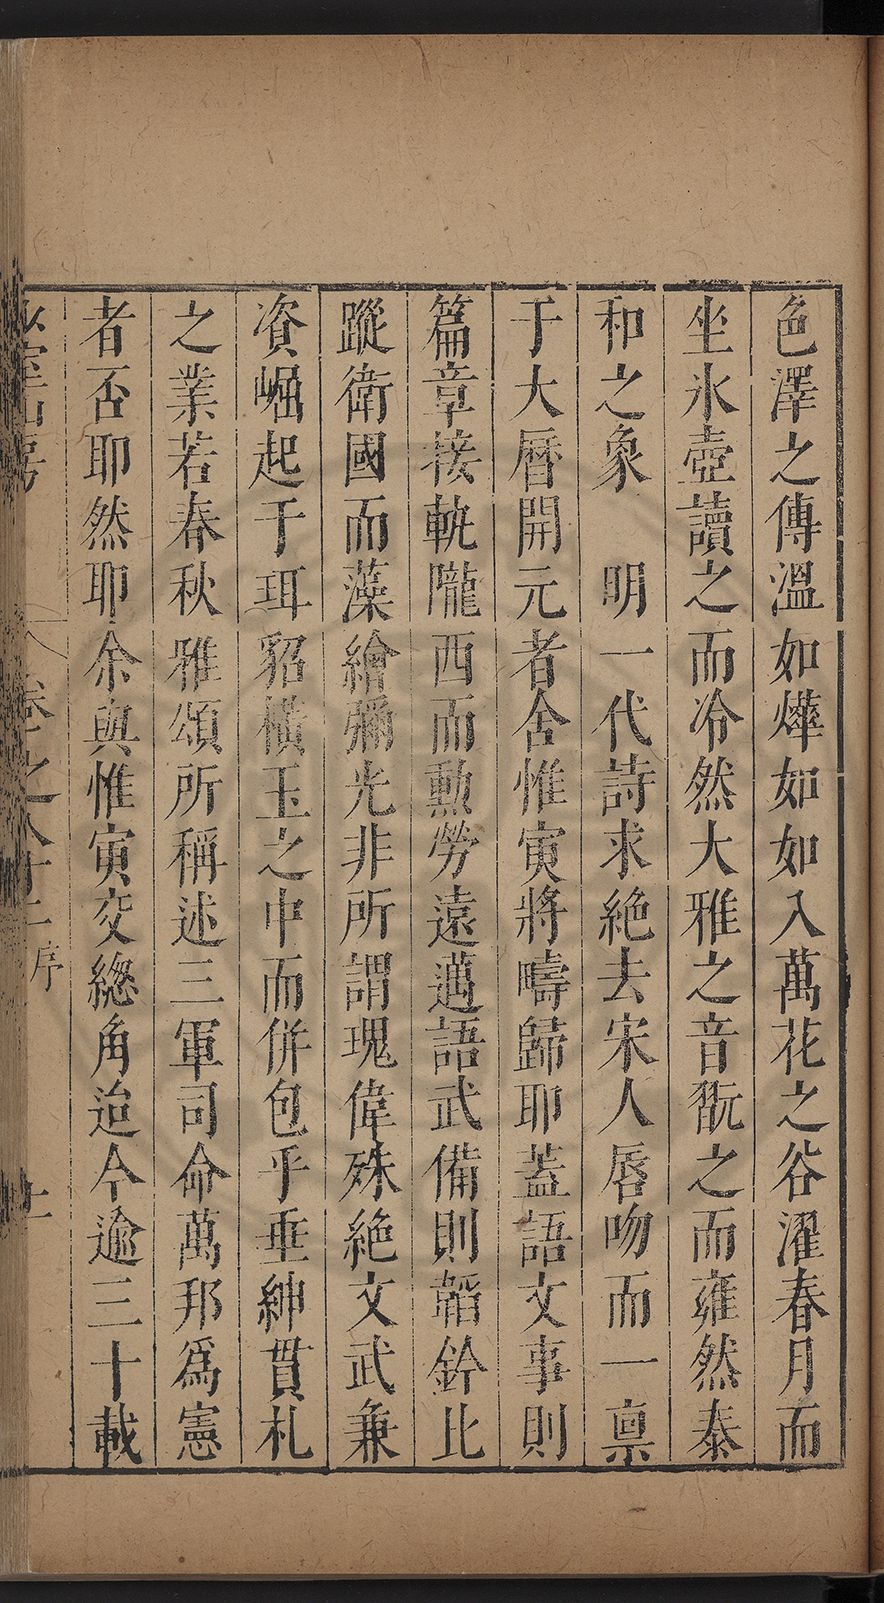 色澤之傳溫如燁如如入萬花之谷濯春月而
坐氷壺讀之而冷然大雅之音翫之而雍然泰
和之象　明一代詩求絕去宋人唇吻而一稟
于大曆開元者舍惟寅將疇歸耶蓋語文事則
篇章接軌隴西而勳勞遠邁語武備則韜鈐比
蹤衛國而藻繪彌光非所謂瑰偉殊絕文武兼
資崛起于珥貂橫玉之中而併包乎垂紳貫札
之業若春秋雅頌所稱述三軍司命萬邦爲憲
者否耶然耶余與惟寅交總角迨今逾三十載
卷之八十二序